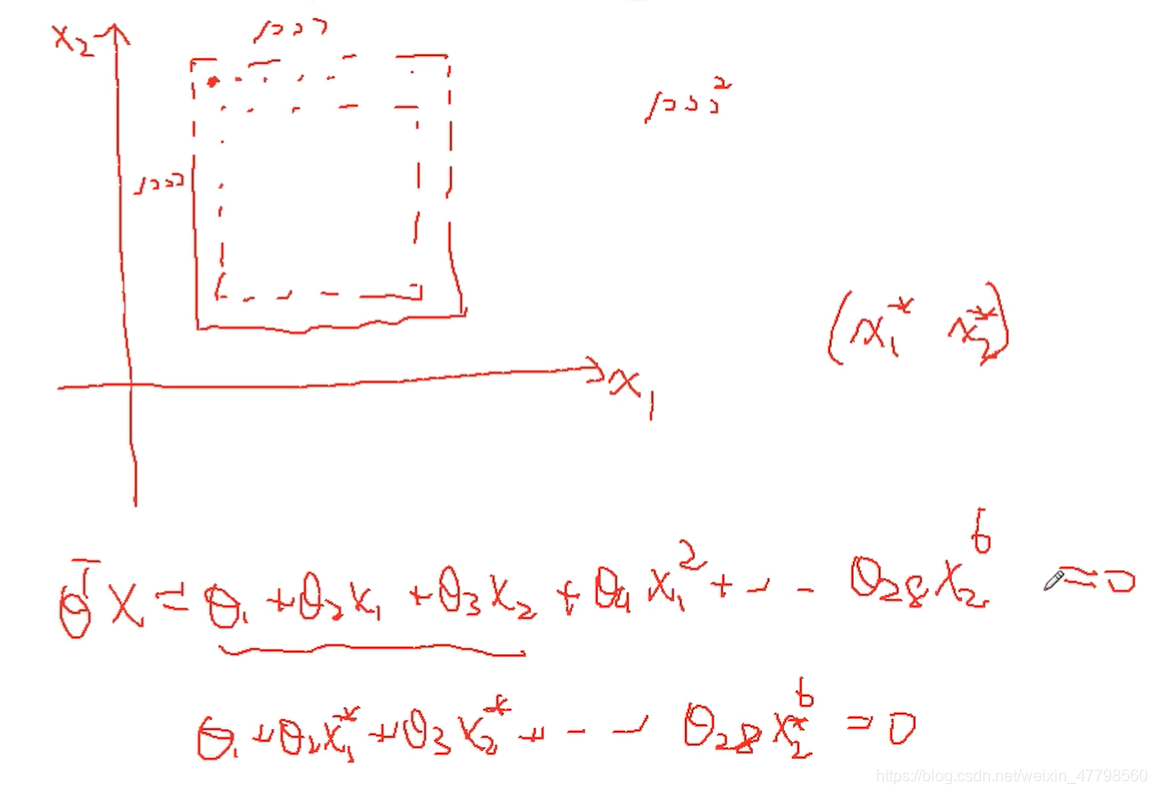 x₂
1000
1000²
1000
(x₁* x₂*)
x₁
θᵀX = θ₁ + θ₂x₁ + θ₃x₂ + θ₄x₁² + -- θ₂₈x₂⁶ = 0
θ₁ + θ₂x₁* + θ₃x₂* + --- θ₂₈x₂*⁶ = 0
https://blog.csdn.net/weixin_47798560